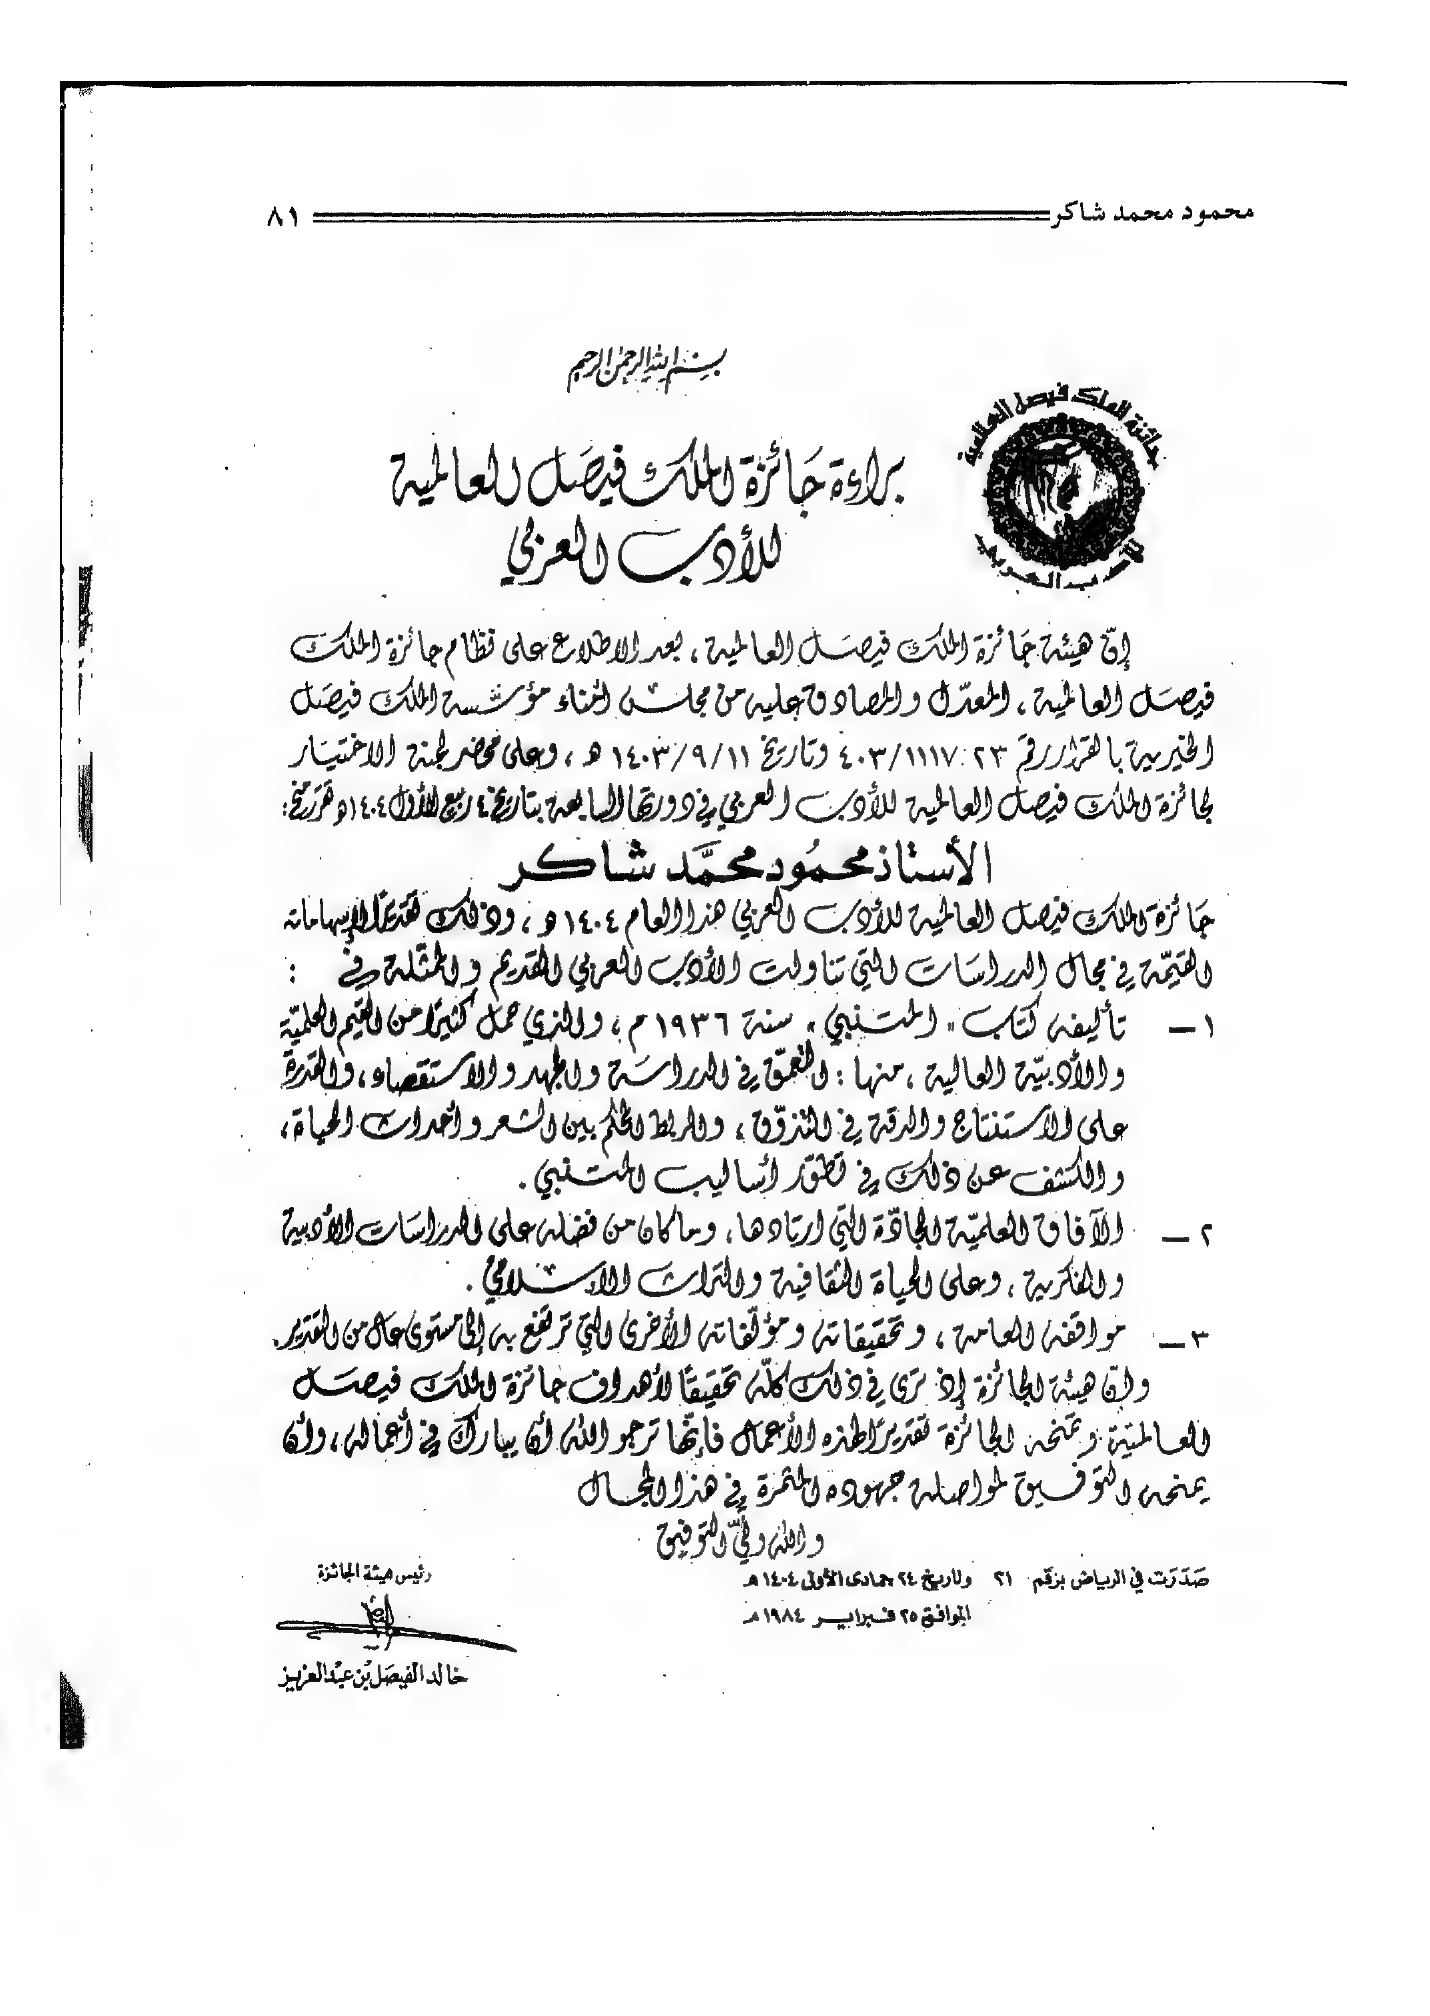 محمود محمد شاكر ٨١
بسم الله الرحمن الرحيم
جائزة الملك فيصل العالمية
للأدب العربي
براءة جَائزة الملك فيصَل العالمية
للأدب العربي
إنّ هيئة جَائزة الملك فيصَل العالمية ، بعد الاطلاع على نظام جائزة الملك
فيصَل العالمية ، المعدّل والمصادق عليه من مجلس أمناء مؤسّسة الملك فيصَل
الخيرية بالقرار رقم ٤٠٣/١١١٧/٢٣ وتاريخ ١٤٠٣/٩/١١ هـ ، وعلى محضر لجنة الاختيَار
لجائزة الملك فيصل العالمية للأدب العربي في دورتها السابعة بتاريخ ٤ ربيع الأول ١٤٠٤هـ تقرر منح :
الأستاذ محمُود محمَّد شاكر
جَائزة الملك فيصل العالمية للأدب العربي هذا العام ١٤٠٤ هـ ، وذلك تقديرًا لإسهاماته
القيّمة في مجال الدراسَات التي تناولت الأدب العربي القديم والمتمثلة في :
١ – تأليفه كتاب " المتنبي " سنة ١٩٣٦ م ، والذي حمل كثيرًا من القيم العلميّة
والأدبيّة العالية ، منها : التعمّق في الدراسَة والجهد والاستقصاء ، والقدرة
على الاستنتاج والدقة في التذوّق ، والربط المحكم بين الشعر وأحداث الحياة ،
والكشف عن ذلك في تطوّر أساليب المتنبي .
٢ – الآفاق العلميّة الجادّة التي ارتادها ، وما كان من فضله على الدراسَات الأدبية
والفكرية ، وعلى الحياة الثقافية والتراث الإسلامي .
٣ – مواقفه العامة ، وتحقيقاته ومؤلّفاته الأخرى التي ترتفع به إلى مستوى عال من التقدير .
وإن هيئة الجائزة إذ ترى في ذلك كلّه تحقيقًا لأهداف جائزة الملك فيصَل
العالميّة وتمنحه الجائزة تقديرًا لهذه الأعمال فإنّها ترجو الله أن يبارك في أعماله ، وأن
يمنحه التوفيق لمواصلة جهوده المثمرة في هذا المجَال
والله وليّ التوفيق
صَدَرَت في الرياض برَقم ٢١ وتاريخ ٢٤ جمادى الأولى ١٤٠٤هـ
الموافق ٢٥ فبراير ١٩٨٤م
رئيس هيئة الجائزة
خالد الفيصَل بْن عَبْد العزيز